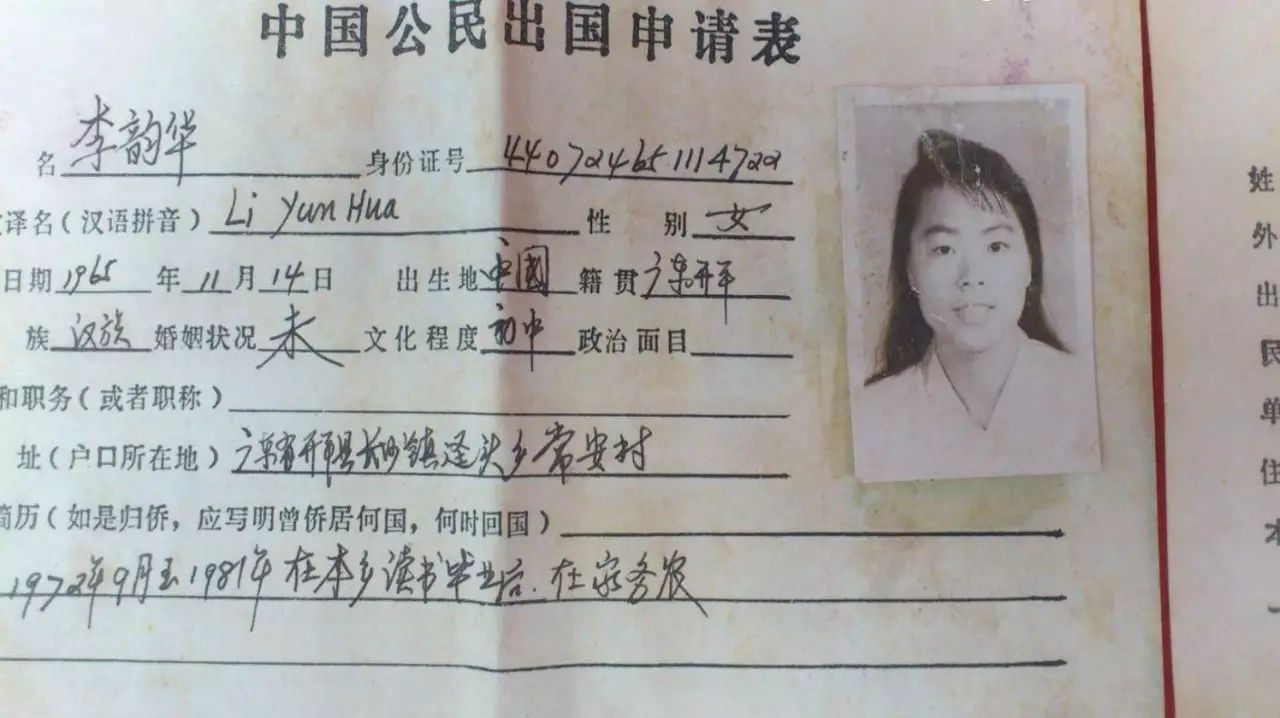 中国公民出国申请表
名 李韵华 身份证号 440724651114722
译名(汉语拼音) Li Yun Hua 性别 女
日期 1965 年 11 月 14 日 出生地 中國 籍贯 广东开平
族 汉族 婚姻状况 未 文化程度 初中 政治面目
和职务(或者职称)
址(户口所在地) 广东省开平县长沙镇逕头乡常安村
简历(如是归侨，应写明曾侨居何国，何时回国)
1972年9月至1981年在本乡读书毕业后.在家务农
姓
外
出
民
单
住
本